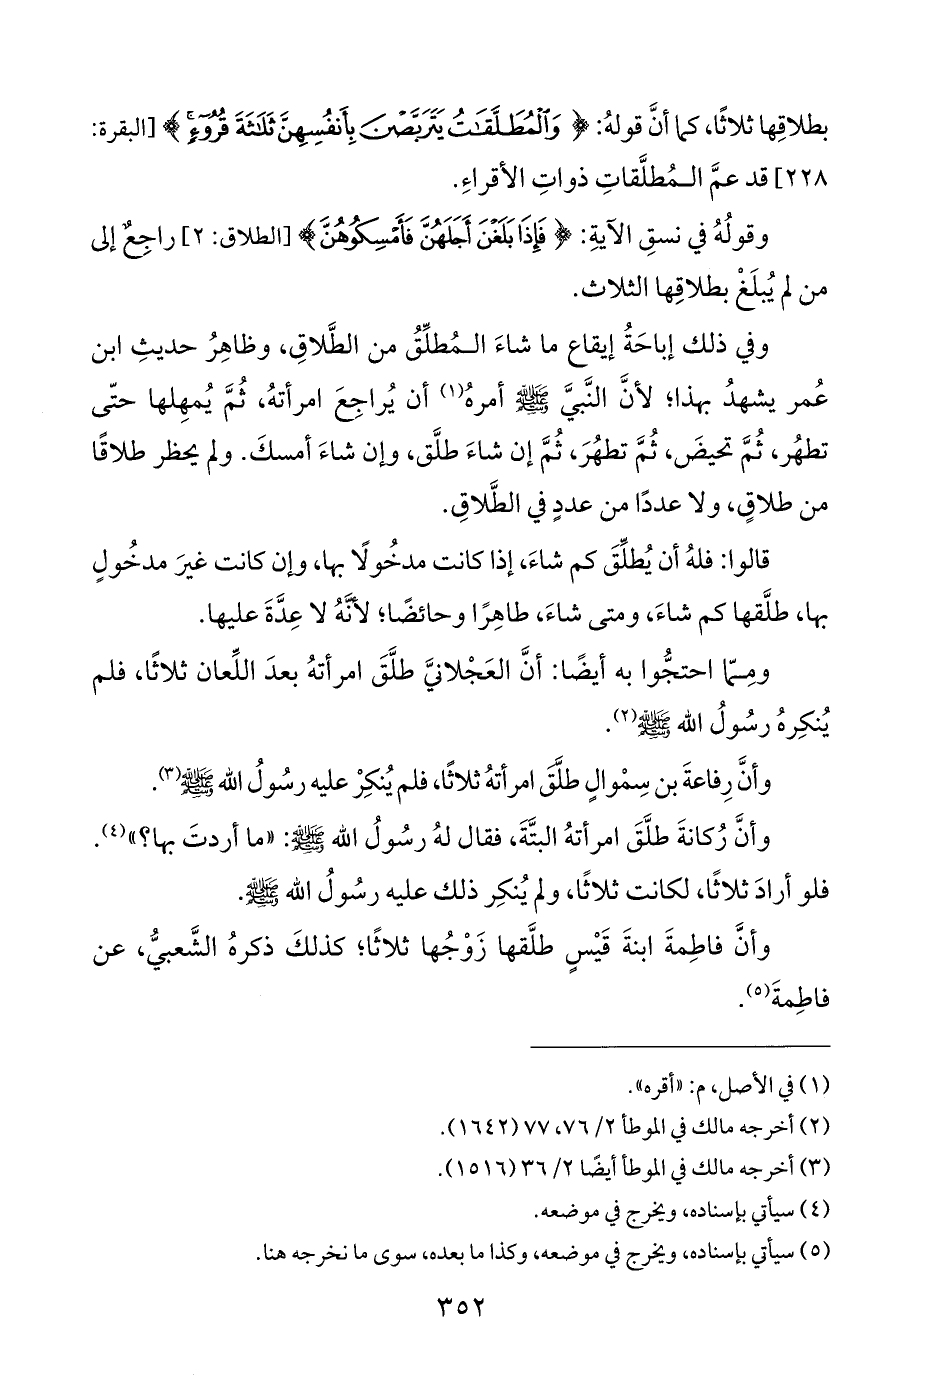 بطلاقِها ثلاثًا، كما أنَّ قولهُ: ﴿ وَٱلْمُطَلَّقَٰتُ يَتَرَبَّصْنَ بِأَنفُسِهِنَّ ثَلَٰثَةَ قُرُوٓءٍ ﴾ [البقرة:
٢٢٨] قد عمَّ الـمُطلَّقاتِ ذواتِ الأقراءِ.
وقولُهُ في نسقِ الآيةِ: ﴿ فَإِذَا بَلَغْنَ أَجَلَهُنَّ فَأَمْسِكُوهُنَّ ﴾ [الطلاق: ٢] راجِعٌ إلى
من لم يُبلَغْ بطلاقِها الثلاث.
وفي ذلك إباحَةُ إيقاع ما شاءَ الـمُطلِّقُ من الطَّلاقِ، وظاهِرُ حديثِ ابن
عُمر يشهدُ بهذا؛ لأنَّ النَّبيَّ ﷺ أمرهُ(١) أن يُراجِعَ امرأتهُ، ثُمَّ يُمهِلها حتّى
تطهُر، ثُمَّ تحيضَ، ثُمَّ تطهُرَ، ثُمَّ إن شاءَ طلَّق، وإن شاءَ أمسكَ. ولم يحظر طلاقًا
من طلاقٍ، ولا عددًا من عددٍ في الطَّلاقِ.
قالوا: فلهُ أن يُطلِّقَ كم شاءَ، إذا كانت مدخُولًا بها، وإن كانت غيرَ مدخُولٍ
بها، طلَّقها كم شاءَ، ومتى شاءَ، طاهِرًا وحائضًا؛ لأنَّهُ لا عِدَّةَ عليها.
ومِـمّا احتجُّوا به أيضًا: أنَّ العَجْلانيَّ طلَّقَ امرأتهُ بعدَ اللِّعان ثلاثًا، فلم
يُنكِرهُ رسُولُ الله ﷺ(٢).
وأنَّ رِفاعةَ بن سِمْوالٍ طلَّقَ امرأتهُ ثلاثًا، فلم يُنكِرْ عليه رسُولُ الله ﷺ(٣).
وأنَّ رُكانةَ طلَّقَ امرأتهُ البتَّةَ، فقال لهُ رسُولُ الله ﷺ: «ما أردتَ بها؟»(٤).
فلو أرادَ ثلاثًا، لكانت ثلاثًا، ولم يُنكِر ذلك عليه رسُولُ الله ﷺ.
وأنَّ فاطِمةَ ابنةَ قَيْسٍ طلَّقها زَوْجُها ثلاثًا؛ كذلكَ ذكرهُ الشَّعبيُّ، عن
فاطِمةَ(٥).
(١) في الأصل، م: «أقره».
(٢) أخرجه مالك في الموطأ ٢/ ٧٦، ٧٧ (١٦٤٢).
(٣) أخرجه مالك في الموطأ أيضًا ٢/ ٣٦ (١٥١٦).
(٤) سيأتي بإسناده، ويخرج في موضعه.
(٥) سيأتي بإسناده، ويخرج في موضعه، وكذا ما بعده، سوى ما نخرجه هنا.
٣٥٢